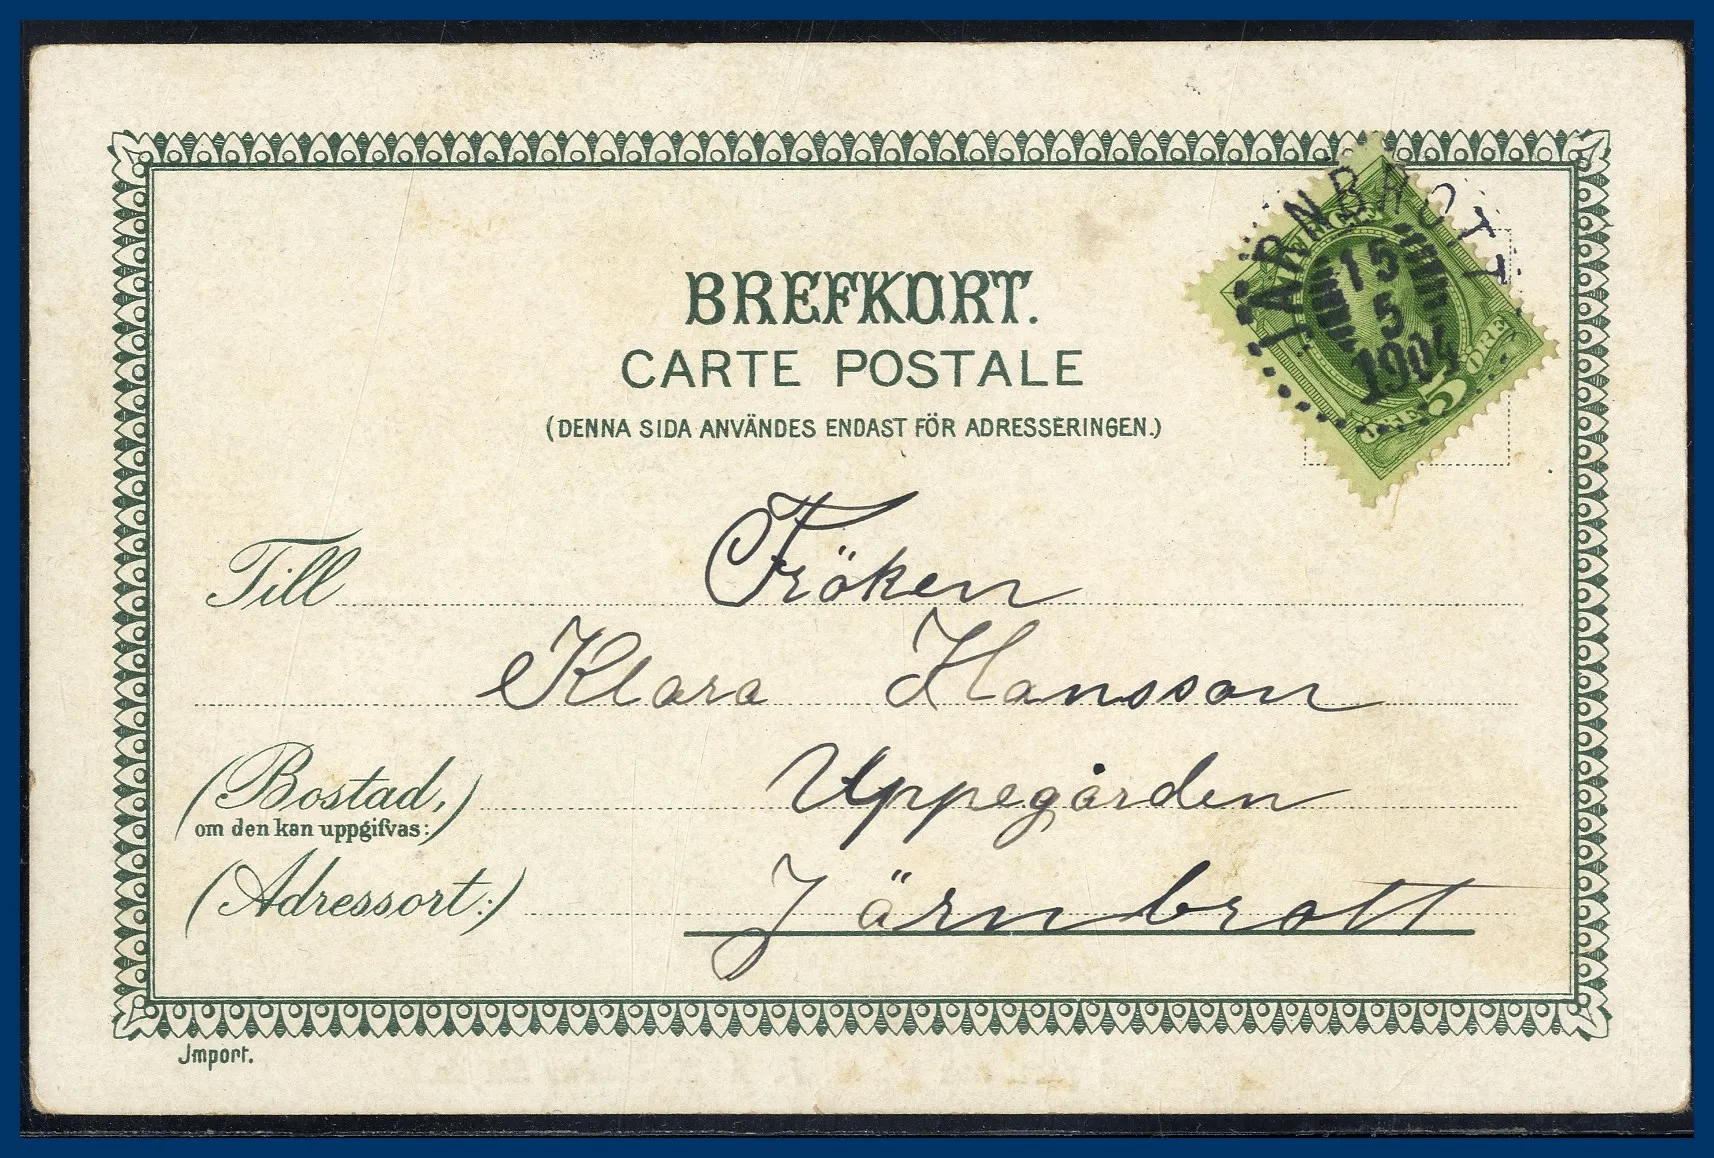 BREFKORT.
CARTE POSTALE
(DENNA SIDA ANVÄNDES ENDAST FÖR ADRESSERINGEN.)
JÄRNBROTT
15
5
1904
5 ÖRE
Till Fröken
Klara Hansson
(Bostad,) Uppegården
om den kan uppgifvas:
(Adressort:) Järnbrott
Import.